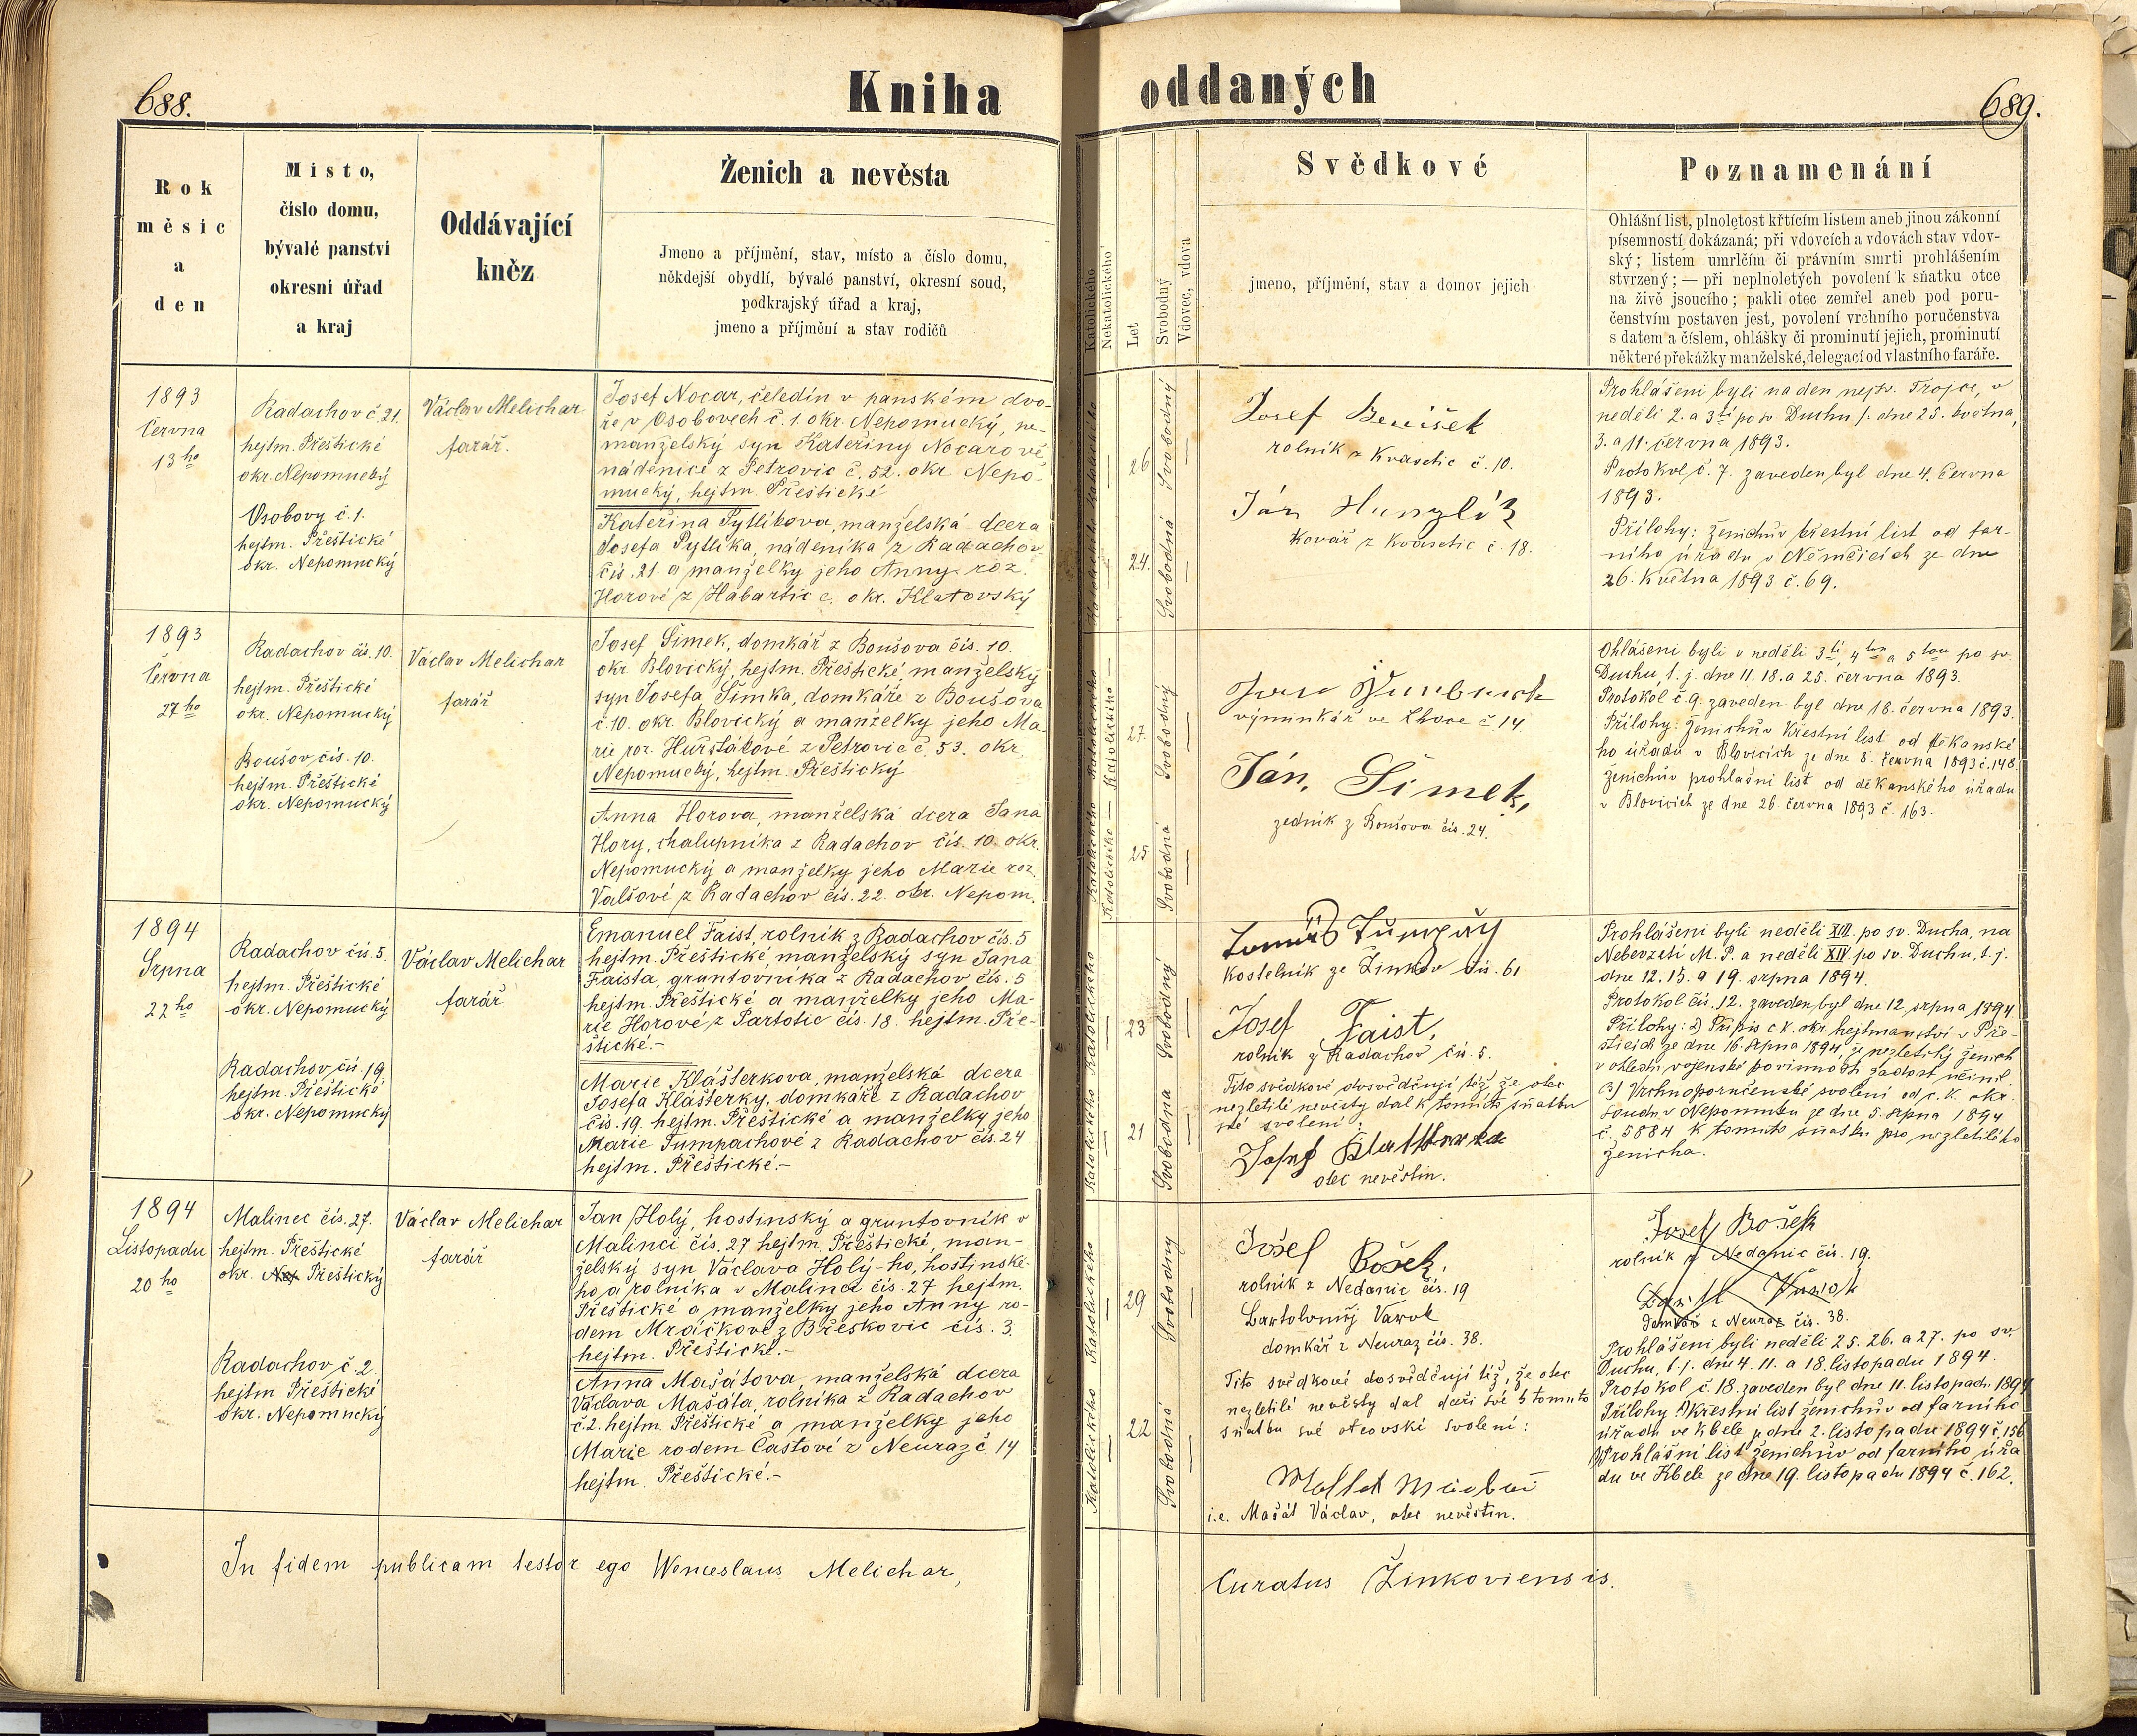 688.
Kniha
Rok
měsíc
a
den
Místo,
číslo domu,
bývalé panství
okresní úřad
a kraj
Oddávající
kněz
Ženich a nevěsta
Jmeno a příjmění, stav, místo a číslo domu,
někdejší obydlí, bývalé panství, okresní soud,
podkrajský úřad a kraj,
jmeno a příjmění a stav rodičů
1893
Června
13ho
Radachov č. 21.
hejtm. Přeštické
okr. Nepomucký
Osobovy č. 1.
hejtm. Přeštické
okr. Nepomucký
Václav Melichar
farář.
Josef Nocar, čeledín v panském dvo-
ře v Osobovech č. 1. okr. Nepomucký, ne-
manželský syn Kateřiny Nocarové
nádenice z Petrovic č. 52. okr. Nepo-
mucký, hejtm. Přeštické
Kateřina Pytlíkova, manželská dcera
Josefa Pytlíka, nádeníka z Radachov
čís. 21. a manželky jeho Anny roz.
Horové z Habartic c. okr. Klatovský
1893
Června
27ho
Radachov čís. 10.
hejtm. Přeštické
okr. Nepomucký
Boušov čís. 10.
hejtm. Přeštické
okr. Nepomucký
Václav Melichar
farář
Josef Šimek, domkář z Boušova čís. 10.
okr. Blovický, hejtm. Přeštické, manželský
syn Josefa Šimka, domkáře z Boušova
č. 10. okr. Blovický a manželky jeho Ma-
rie roz. Huršťákové z Petrovic č. 53. okr.
Nepomucký, hejtm. Přeštický
Anna Horova, manželská dcera Jana
Hory, chalupníka z Radachov čís. 10. okr.
Nepomucký a manželky jeho Marie roz.
Valšové z Radachov čís. 22. okr. Nepom.
1894
Srpna
22ho
Radachov čís. 5.
hejtm. Přeštické
okr. Nepomucký
Radachov čís. 19
hejtm. Přeštické
okr. Nepomucký
Václav Melichar
farář
Emanuel Faist, rolník z Radachov čís. 5
hejtm. Přeštické, manželský syn Jana
Faista, gruntovníka z Radachov čís. 5
hejtm. Přeštické a manželky jeho Ma-
rie Horové z Partotic čís. 18. hejtm. Pře-
štické.-
Marie Klášterkova, manželská dcera
Josefa Klášterky, domkáře z Radachov
čís. 19. hejtm. Přeštické a manželky jeho
Marie Tumpachové z Radachov čís. 24
hejtm. Přeštické.-
1894
Listopadu
20ho
Malinec čís. 27.
hejtm. Přeštické
okr. Nep Přeštický
Radachov č. 2.
hejtm Přeštické
okr. Nepomucký
Václav Melichar
farář
Jan Holý, hostinský a gruntovník v
Malinci čís. 27 hejtm. Přeštické, man-
želský syn Václava Holý-ho, hostinské-
ho a rolníka v Malinci čís. 27 hejtm.
Přeštické a manželky jeho Anny ro-
dem Mráčkové z Břeskovic čís. 3.
hejtm. Přeštické.-
Anna Mašátova, manželská dcera
Václava Mašáta, rolníka z Radachov
č. 2. hejtm. Přeštické a manželky jeho
Marie rodem Častové z Neuraz č. 14
hejtm. Přeštické.-
In fidem publicam testor ego Wenceslaus Melichar,
oddaných
689.
Katolického
Nekatolického
Let
Svobodný
Vdovec, vdova
Svědkové
jmeno, příjmění, stav a domov jejich
Poznamenání
Ohlášní list, plnoletost křtícím listem aneb jinou zákonní
písemností dokázaná; při vdovcích a vdovách stav vdov-
ský; listem umrlčím či právním smrti prohlášením
stvrzený; — při neplnoletých povolení k sňatku otce
na živě jsoucího; pakli otec zemřel aneb pod poru-
čenstvím postaven jest, povolení vrchního poručenstva
s datem a číslem, ohlášky či prominutí jejich, prominutí
některé překážky manželské, delegací od vlastního faráře.
Katolického
26
Svobodný
Katolického
24.
Svobodná
Josef Beníšek
rolník z Kvasetic č. 10.
Ján
Kovář z Kvasetic č. 18.
Prohlášeni byli na den nejsv. Trojce, v
neděli 2. a 3tí po sv. Duchu t. dne 25. května,
3. a 11. června 1893.
Protokol č. 7. zaveden byl dne 4. června
1893.
Přílohy: Ženichův křestní list od far-
ního úřadu v Němčicích ze dne
26. května 1893 č. 69.
Katolického
27.
Svobodný
Katolického
25
Svobodná
výminkář ve Lhoce č 14
Ján, Šimek,
zedník z Boušova čís. 24.
Ohlášeni byli v neděli 3tí, 4tou a 5tou po sv.
Duchu, t. j. dne 11. 18. a 25. června 1893.
Protokol č. 9. zaveden byl dne 18. června 1893.
Přílohy: Ženichův křestní list od děkanské-
ho úřadu v Blovicích ze dne 8. června 1893 č. 148.
Ženichův prohlašní list od děkanského úřadu
v Blovicích ze dne 26 června 1893 č. 163.
Katolického
23
Svobodný
Katolického
21
Svobodna
Kostelník ze Žinkov čís. 61
Josef Faist,
rolník z Radachov čís. 5.
Tito svědkové dosvědčují též, že otec
nezletilé nevěsty dal k tomuto sňatku
své svolení:
otec nevěstin.
Prohlášeni byli neděli XIII. po sv. Ducha, na
Nebevzetí M. P. a neděli XIV. po sv. Duchu, t. j.
dne 12. 15. a 19. srpna 1894.
Protokol čís. 12. zaveden byl dne 12 srpna 1894
Přílohy: 2) Přípis c. k. okr. hejtmanství v Pře-
šticích ze dne 16. srpna 1894, že nezletilý ženich
v ohledu vojenské povinnosti žádost učinil.
3) Vrchnoporučenské svolení od c. k. okr.
soudu v Nepomuku ze dne 5. srpna 1894
č. 5884 k tomuto sňatku pro nezletilého
ženicha.
Katolického
29
Svobodný
Katolického
22
Svobodná
Jósef Bošek,
rolník z Nedanic čís. 19
Bartoloměj Vavrok
domkář z Neuraz čís. 38.
Tito svědkové dosvědčují též, že otec
nezletilé nevěsty dal dceři své k tomuto
sňatku své otcovské svolení:
i.e. Mašát Václav, otec nevěstin.
Josef Bošek
rolník z Nedanic čís. 19.
domkář z Neuraz čís. 38.
Prohlášeni byli neděli 25. 26. a 27. po sv.
Duchu, t. j. dne 4. 11. a 18. listopadu 1894.
Protokol č. 18. zaveden byl dne 11. listopadu 1894
Přílohy: 1) Křestní list ženichův od farního
úřadu ve Kbele ze dne 2. listopadu 1894 č. 156
Prohlášní list ženichův od farního úřa
du ve Kbele ze dne 19. listopadu 1894 č. 162.
Curatus Žinkoviensis.